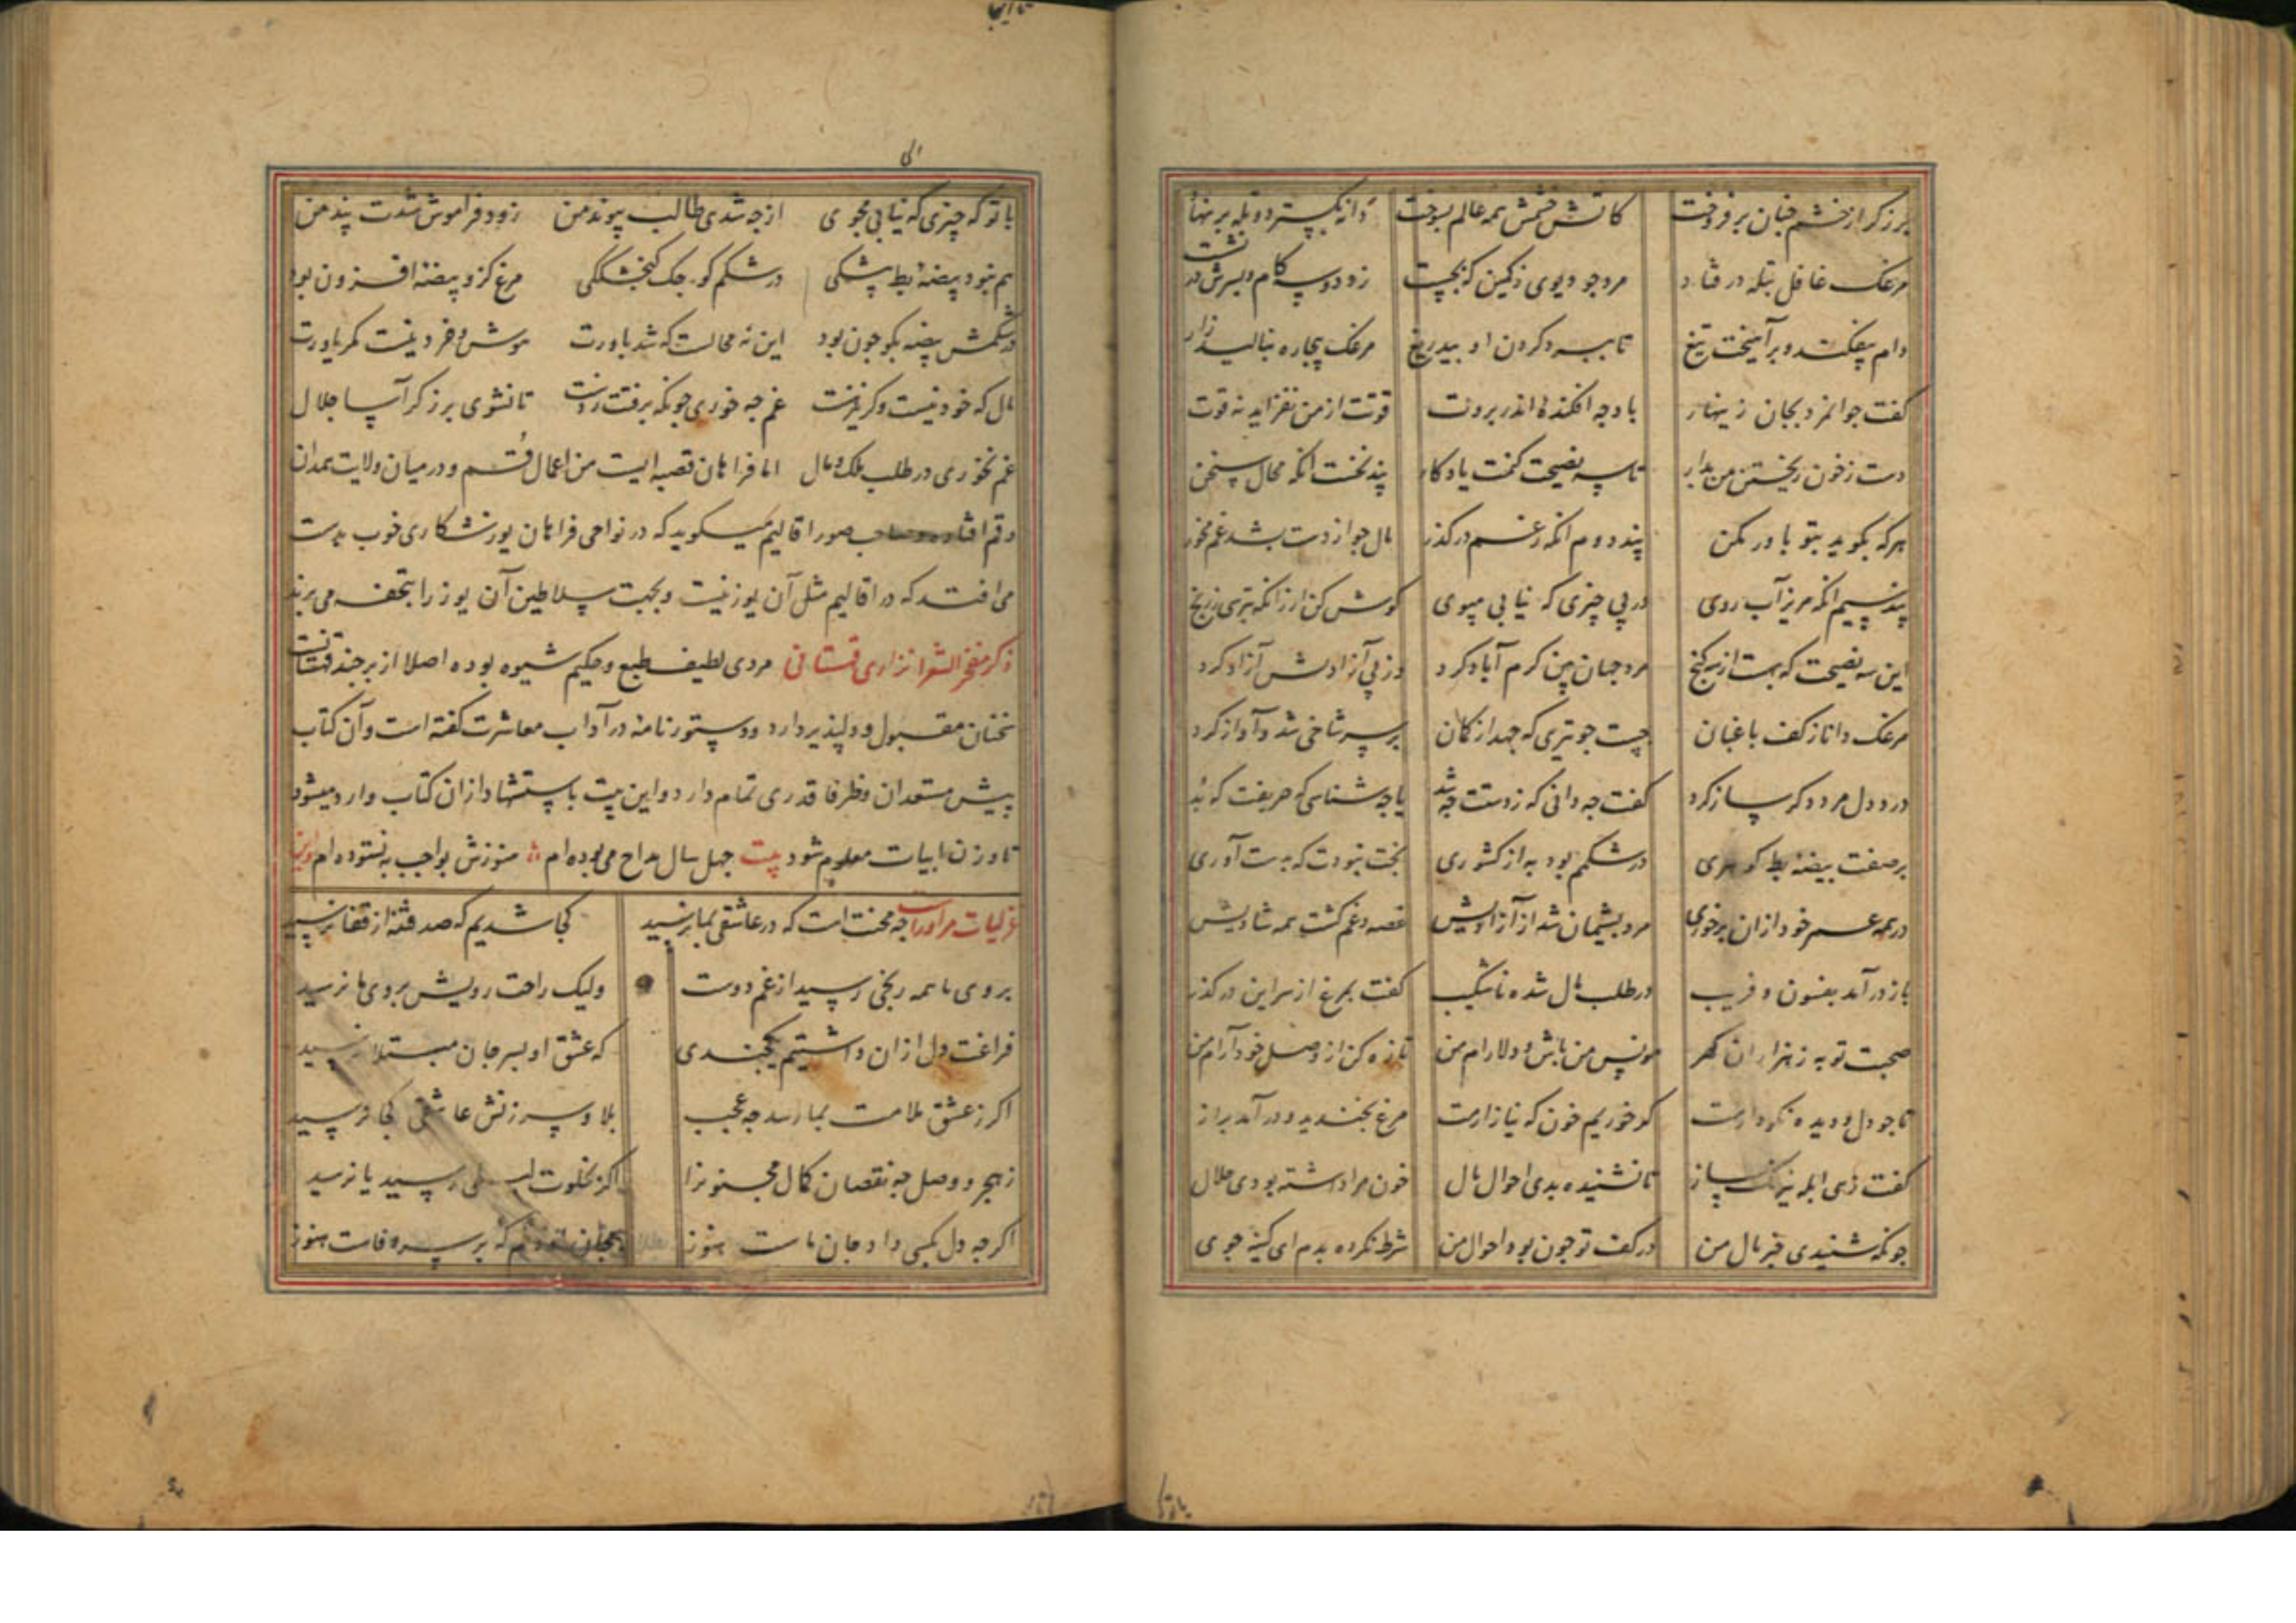 برزگر از خشم چنان برفروخت کاتش خشمش همه عالم بسوخت دانه بگسترد و تله بر نهاد
مرغک غافل بتله در فتاد مرد چو دیوی ز کمین که بجست زود دوید
دام بیفکند و برآهیخت تیغ تا ببرد گردن او بیدریغ مرغک بیچاره بنالید زار
کفت جوانمرد بجان زینهار باد چه افکنده اندر بروت قوتت از من نفزاید نه قوت
دست ز خون ریختن من بدار تا سه نصیحت کنمت یادکار پند نخست آنکه محال سخن
هرکه بگوید بتو باور مکن پند دوم آنکه ز غم درگذر مال چو از دست بشد غم مخور
پند سیم آنکه مریز آب روی در پی چیزی که نیابی مپوی کوش کن ار زانکه نترسی ز رنج
این سه نصیحت که بهست از سه کنج مرد جهان بین کرم آباد کرد وز پی آزادیش آزاد کرد
مرغک دانا ز کف باغبان جست چو تیری که جهد از کمان بر سر شاخی شد و آواز کرد
در دل مرد دگر ساز کرد کفت چه دانی که ز دستت چه شد یا چه شناسی که حریفت که بد
بر صفت بیضه بط گوهری در شکمم بود به از کشوری بخت نبودت که بدست آوری
در همه عمر خود از آن برخوری مرد پشیمان شد از آزادیش غصه و غم کشت همه شادیش
باز درآمد بفسون و فریب در طلب مال شده ناشکیب کفت بمرغ از سر این درگذر
صحبت تو به ز هزاران کهر مونس من باش و دلارام من تازه کن از وصل خود آرام من
تا چو دل و دیده نکو دارمت کو خوریم خون که نیازارمت مرغ بخندید و درآمد براز
کفت زهی ابله نیرنک ساز تا نشنیده بدی احوال مال خون مرا داشته بودی حلال
چونکه شنیدی خبر مال من در کف تو چون بود احوال من شرط نکرده بدم ای کینه جوی
با تو که چیزی که نیابی مجوی از چه شدی طالب پیوند من زود فراموش شدت پند من
هم نبود بیضه بط بیشکی در شکم کوچک کنجشککی مرغ کزو بیضه افزون بود
در شکمش بیضه بگو چون بود این نه محالست که شد باورت هوش و خرد نیست مکر یاورت
مال که خود نیست وکر نیز هست غم چه خوری چونکه برفت ز دست تا نشوی برزکر آسا جلال
غم نخوری در طلب ملک و مال اما فراهان قصبه ایست من اعمال قم و در میان ولایت همدان
و قم افتاده و صاحب صور اقالیم میکوید که در نواحی فراهان یوز شکاری خوب بدست
می افتد که در اقالیم مثل آن یوز نیست و بجهت سلاطین آن یوز را بتحفه می برند
ذکر مفخر الشعرا نزاری قهستانی مردی لطیف طبع و حکیم شیوه بوده اصلا از برجند قهستانست
سخنان مقبول و دلپذیر دارد و دستورنامه در آداب معاشرت کفته است و آن کتاب
پیش مستعدان و ظرفا قدری تمام دارد و این بیت باستشهاد از ان کتاب وارد میشود
تا وزن ابیات معلوم شود بیت چهل سال مداح می بوده ام هنوزش بواجب نستوده ام
غزلیات مر او راست چه محنت است که در عاشقی بما نرسید کجا شدیم که صد فتنه از قفا نرسید
بروی ما همه رنجی رسید از غم دوست ولیک راحت رویش بروی ما نرسید
فراغت دل از ان داشتیم یکچندی که عشق او بسر جان مبتلا نرسید
اکر ز عشق ملامت بما رسد چه عجب بلا و سرزنش عاشقی کجا نرسید
ز هجر و وصل چه نقصان کمال مجنونرا اکر بخلوت لیلی رسید یا نرسید
اکرچه دل بکسی داد جان ماست هنوز بجان که بر سر وفاست هنوز